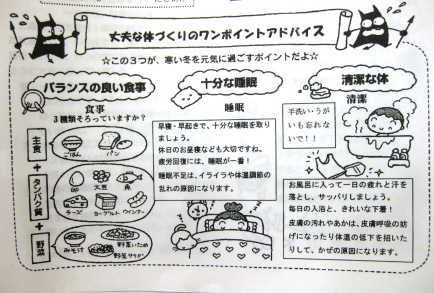 丈夫な体づくりのワンポイントアドバイス
☆この3つが、寒い冬を元気に過ごすポイントだよ☆
バランスの良い食事
食事
3種類そろっていますか?
主食
ごはん
パン
+
タンパク質
卵
大豆
魚
チーズ
ヨーグルト
ウインナー
+
野菜
みそ汁
野菜いため
野菜サラダ
十分な睡眠
睡眠
早寝・早起きで、十分な睡眠を取り
ましょう。
休日のお昼寝なども大切ですね。
疲労回復には、睡眠が一番!
睡眠不足は、イライラや体温調節の
乱れの原因になります。
清潔な体
清潔
手洗い・うが
いも忘れな
いで!!
お風呂に入って一日の疲れと汗を
落とし、サッパリしましょう。
毎日の入浴と、きれいな下着!
皮膚の汚れやあかは、皮膚呼吸の妨
げになったり体温の低下を招いた
りして、かぜの原因になります。